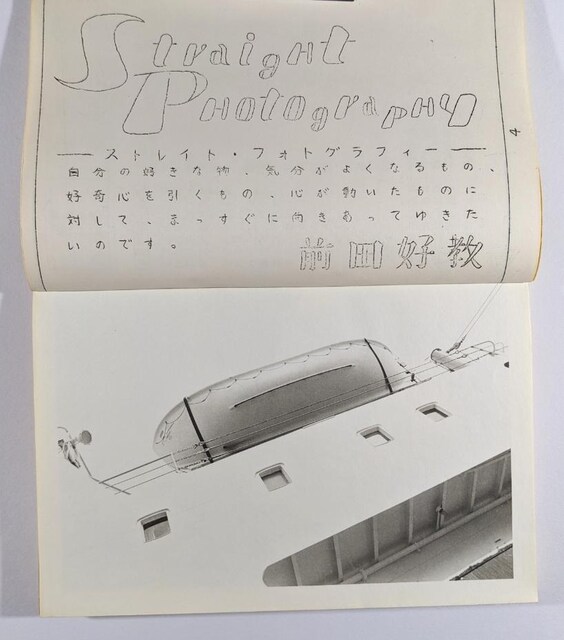 Straight
Photography
ーストレイト・フォトグラフィーー
自分の好きな物、気分がよくなるもの、
好奇心を引くもの、心が動いたものに
対して、まっすぐに向きあってゆきた
いのです。
前田好教
4